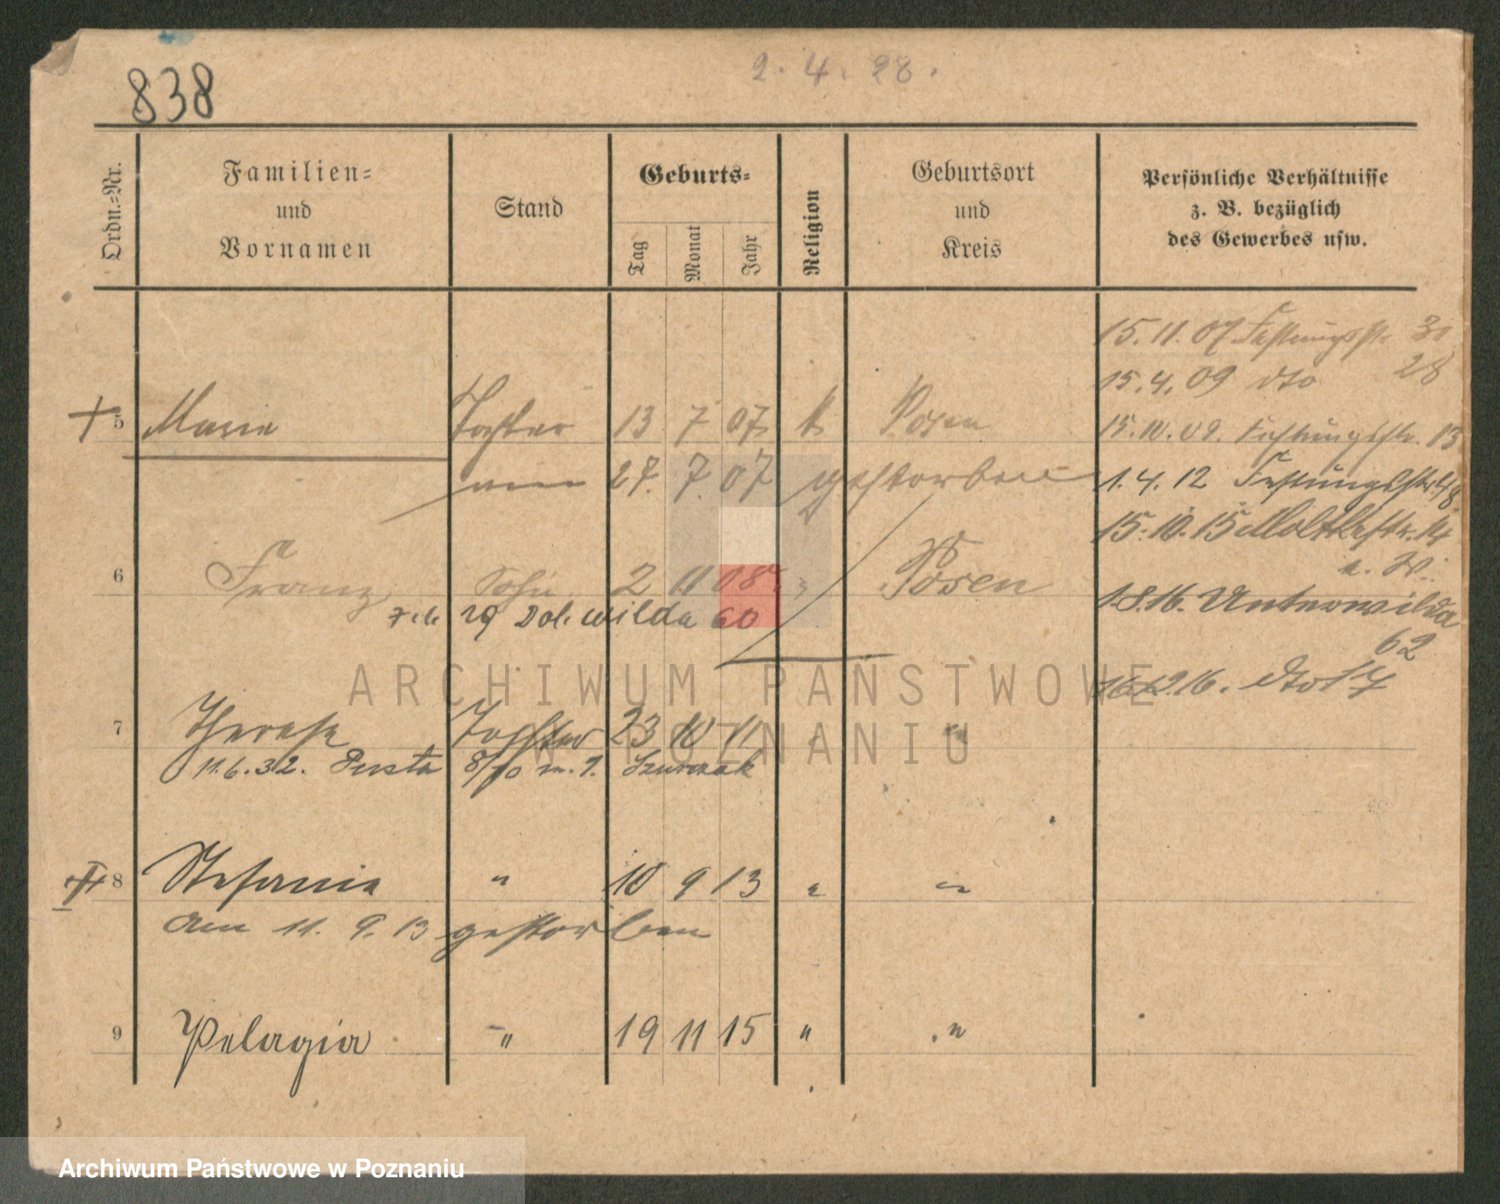 838
2. 4. 28.
Ordn.-Nr.
Familien-
und
Vornamen
Stand
Geburts-
Tag
Monat
Jahr
Religion
Geburtsort
und
Kreis
Persönliche Verhältnisse
z. B. bezüglich
des Gewerbes usw.
15. 11. 07 Festungsstr. 31
28
15. 4. 09 dto
5 Marie Tochter 13 7 07 k. Posen
15. 10. 09. Festungsstr. 13
27. 7. 07 gestorben
1. 4. 12 Festungsstr.
15. 10. 15 Moltkestr. 14
6 Franz Sohn 2 11 08 " Posen
1.8.16. Unterwilda
62
29 Dol. wilda 60
16.12.16. dto 17
7 Therese Tochter 23 10 11 " "
11.6.32. Pusta 8/10 m. 7. Szurczak
8 Stefania " 10 9 13 " "
Am 11. 9. 13 gestorben
9 Pelagia " 19 11 15 " "
ARCHIWUM PAŃSTWOWE
W POZNANIU
Archiwum Państwowe w Poznaniu